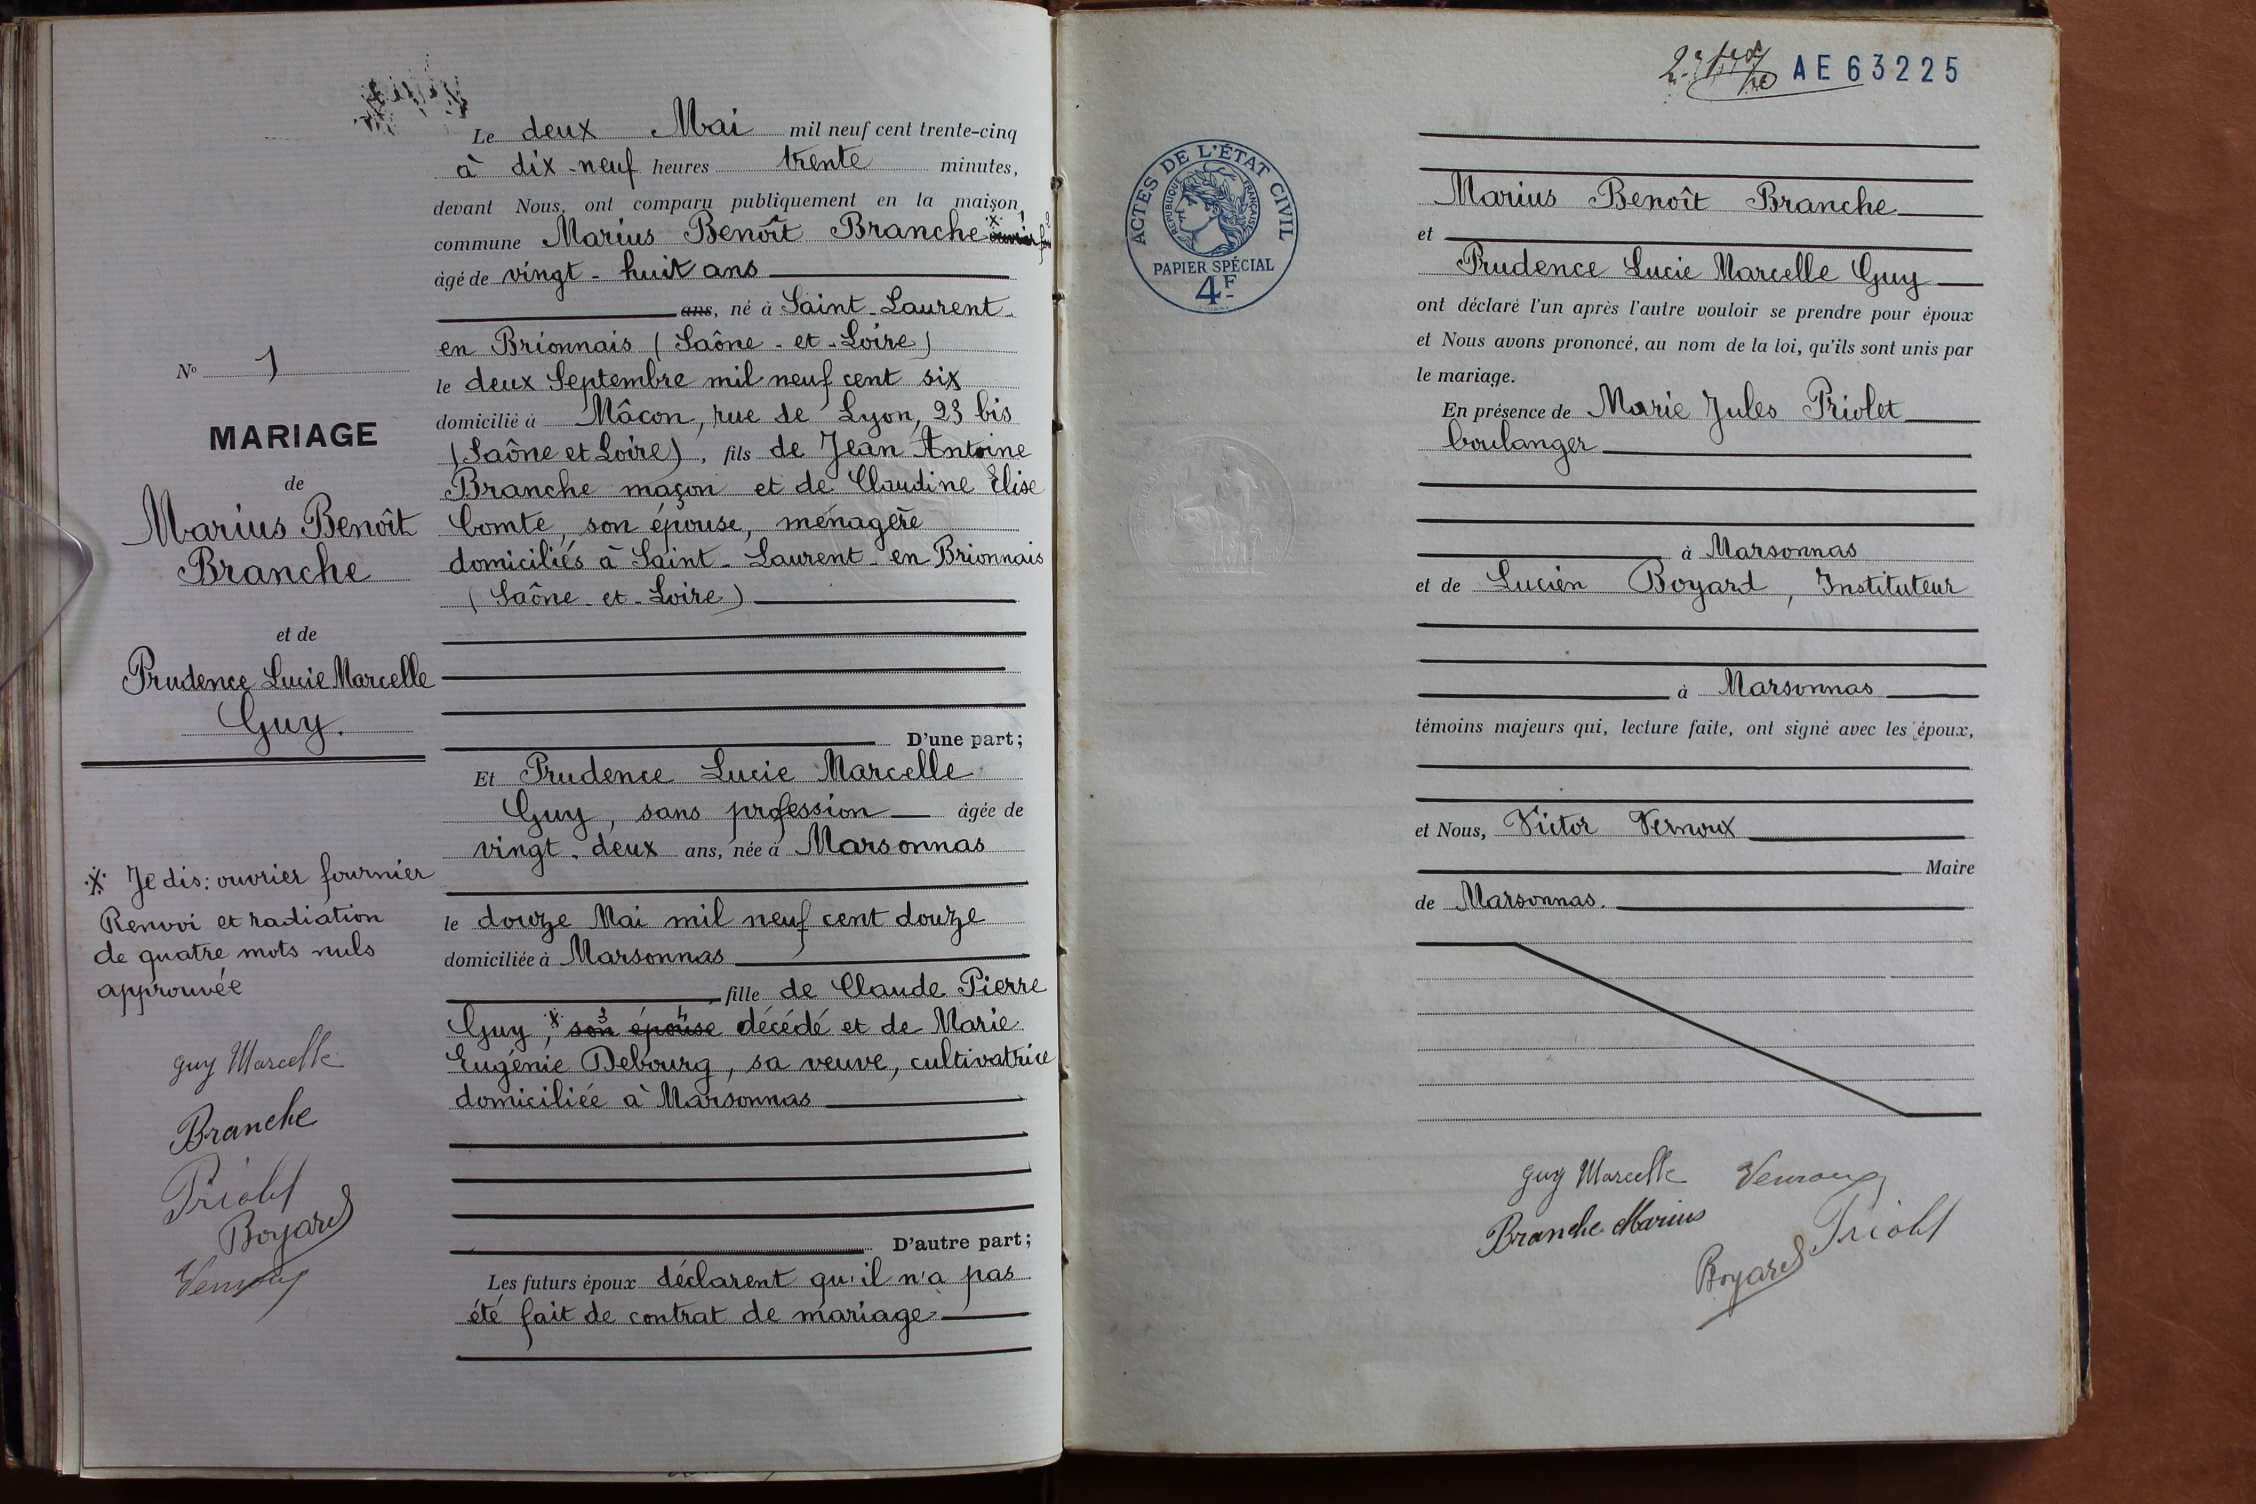 N° 1
MARIAGE
de
Marius Benoît
Branche
et de
Prudence Lucie Marcelle
Guy.
X Je dis: ouvrier fournier
Renvoi et radiation
de quatre mots nuls
approuvée
Guy Marcelle
Branche
Priolet
Boyard
Vernoux
Le deux Mai mil neuf cent trente-cinq
à dix-neuf heures trente minutes,
devant Nous, ont comparu publiquement en la maison
commune Marius Benoît Branche X ouvrier
âgé de vingt-huit ans
ans, né à Saint-Laurent-
en Brionnais (Saône-et-Loire)
le deux Septembre mil neuf cent six
domicilié à Mâcon, rue de Lyon, 23 bis
(Saône et Loire), fils de Jean Antoine
Branche maçon et de Claudine Elise
Comte, son épouse, ménagère
domiciliés à Saint-Laurent-en Brionnais
(Saône-et-Loire)
D'une part;
Et Prudence Lucie Marcelle
Guy, sans profession âgée de
vingt-deux ans, née à Marsonnas
le douze Mai mil neuf cent douze
domiciliée à Marsonnas
fille de Claude Pierre
Guy, X son épouse décédé et de Marie
Eugénie Debourg, sa veuve, cultivatrice
domiciliée à Marsonnas
D'autre part;
Les futurs époux déclarent qu'il n'a pas
été fait de contrat de mariage
AE63225
ACTES DE L'ÉTAT CIVIL
RÉPUBLIQUE FRANÇAISE
PAPIER SPÉCIAL
4F
Marius Benoît Branche
et
Prudence Lucie Marcelle Guy
ont déclaré l'un après l'autre vouloir se prendre pour époux
et Nous avons prononcé, au nom de la loi, qu'ils sont unis par
le mariage.
En présence de Marie Jules Priolet
boulanger
à Marsonnas
et de Lucien Boyard, Instituteur
à Marsonnas
témoins majeurs qui, lecture faite, ont signé avec les époux,
et Nous, Victor Vernoux
Maire
de Marsonnas.
Guy Marcelle Vernoux
Branche Marius Priolet
Boyard